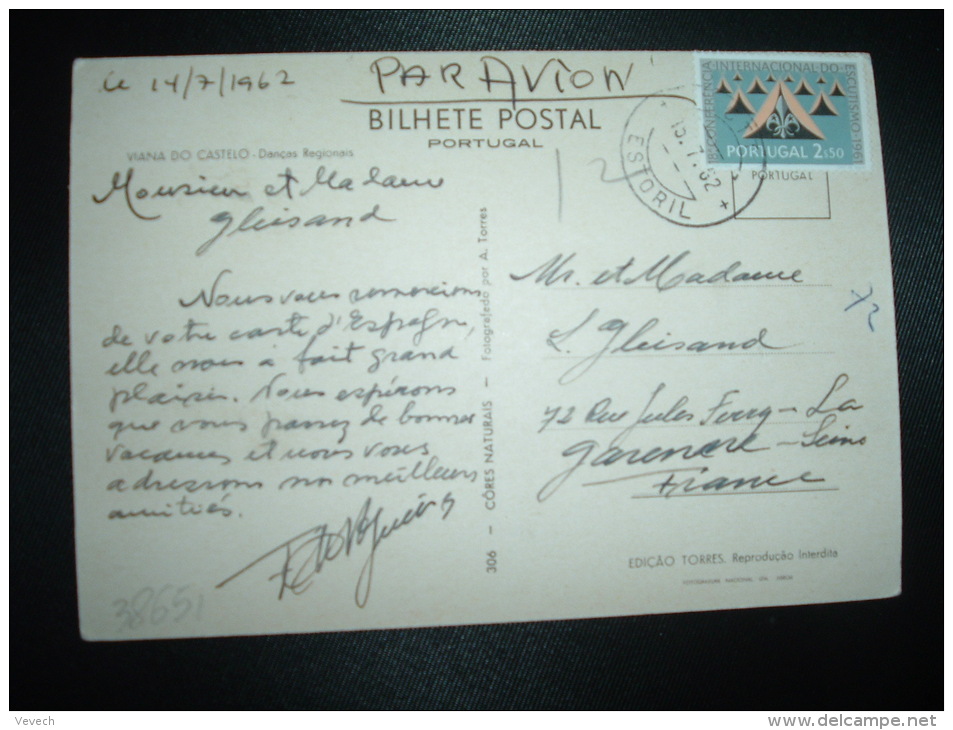 Le 14/7/1962
PAR AVION
BILHETE POSTAL
PORTUGAL
VIANA DO CASTELO - Danças Regionais
Monsieur et Madame
Gleisand
Nous vous remercions
de votre carte d'Espagne,
elle nous à fait grand
plaisir. Nous espérons
que vous passez de bonnes
vacances et nous vous
adressons nos meilleurs
amitiés.
38651
306 - CÔRES NATURAIS - Fotografado por A. Torres
18ª CONFERÊNCIA INTERNACIONAL DO ESCUTISMO-1961
PORTUGAL 2$50
ESTORIL
PORTUGAL
12
Mr. et Madame
L. Gleisand
72 Rue Jules Ferry - La
Garenne - Seine
France
72
EDIÇÃO TORRES. Reprodução Interdita
Vevech
www.delcampe.net